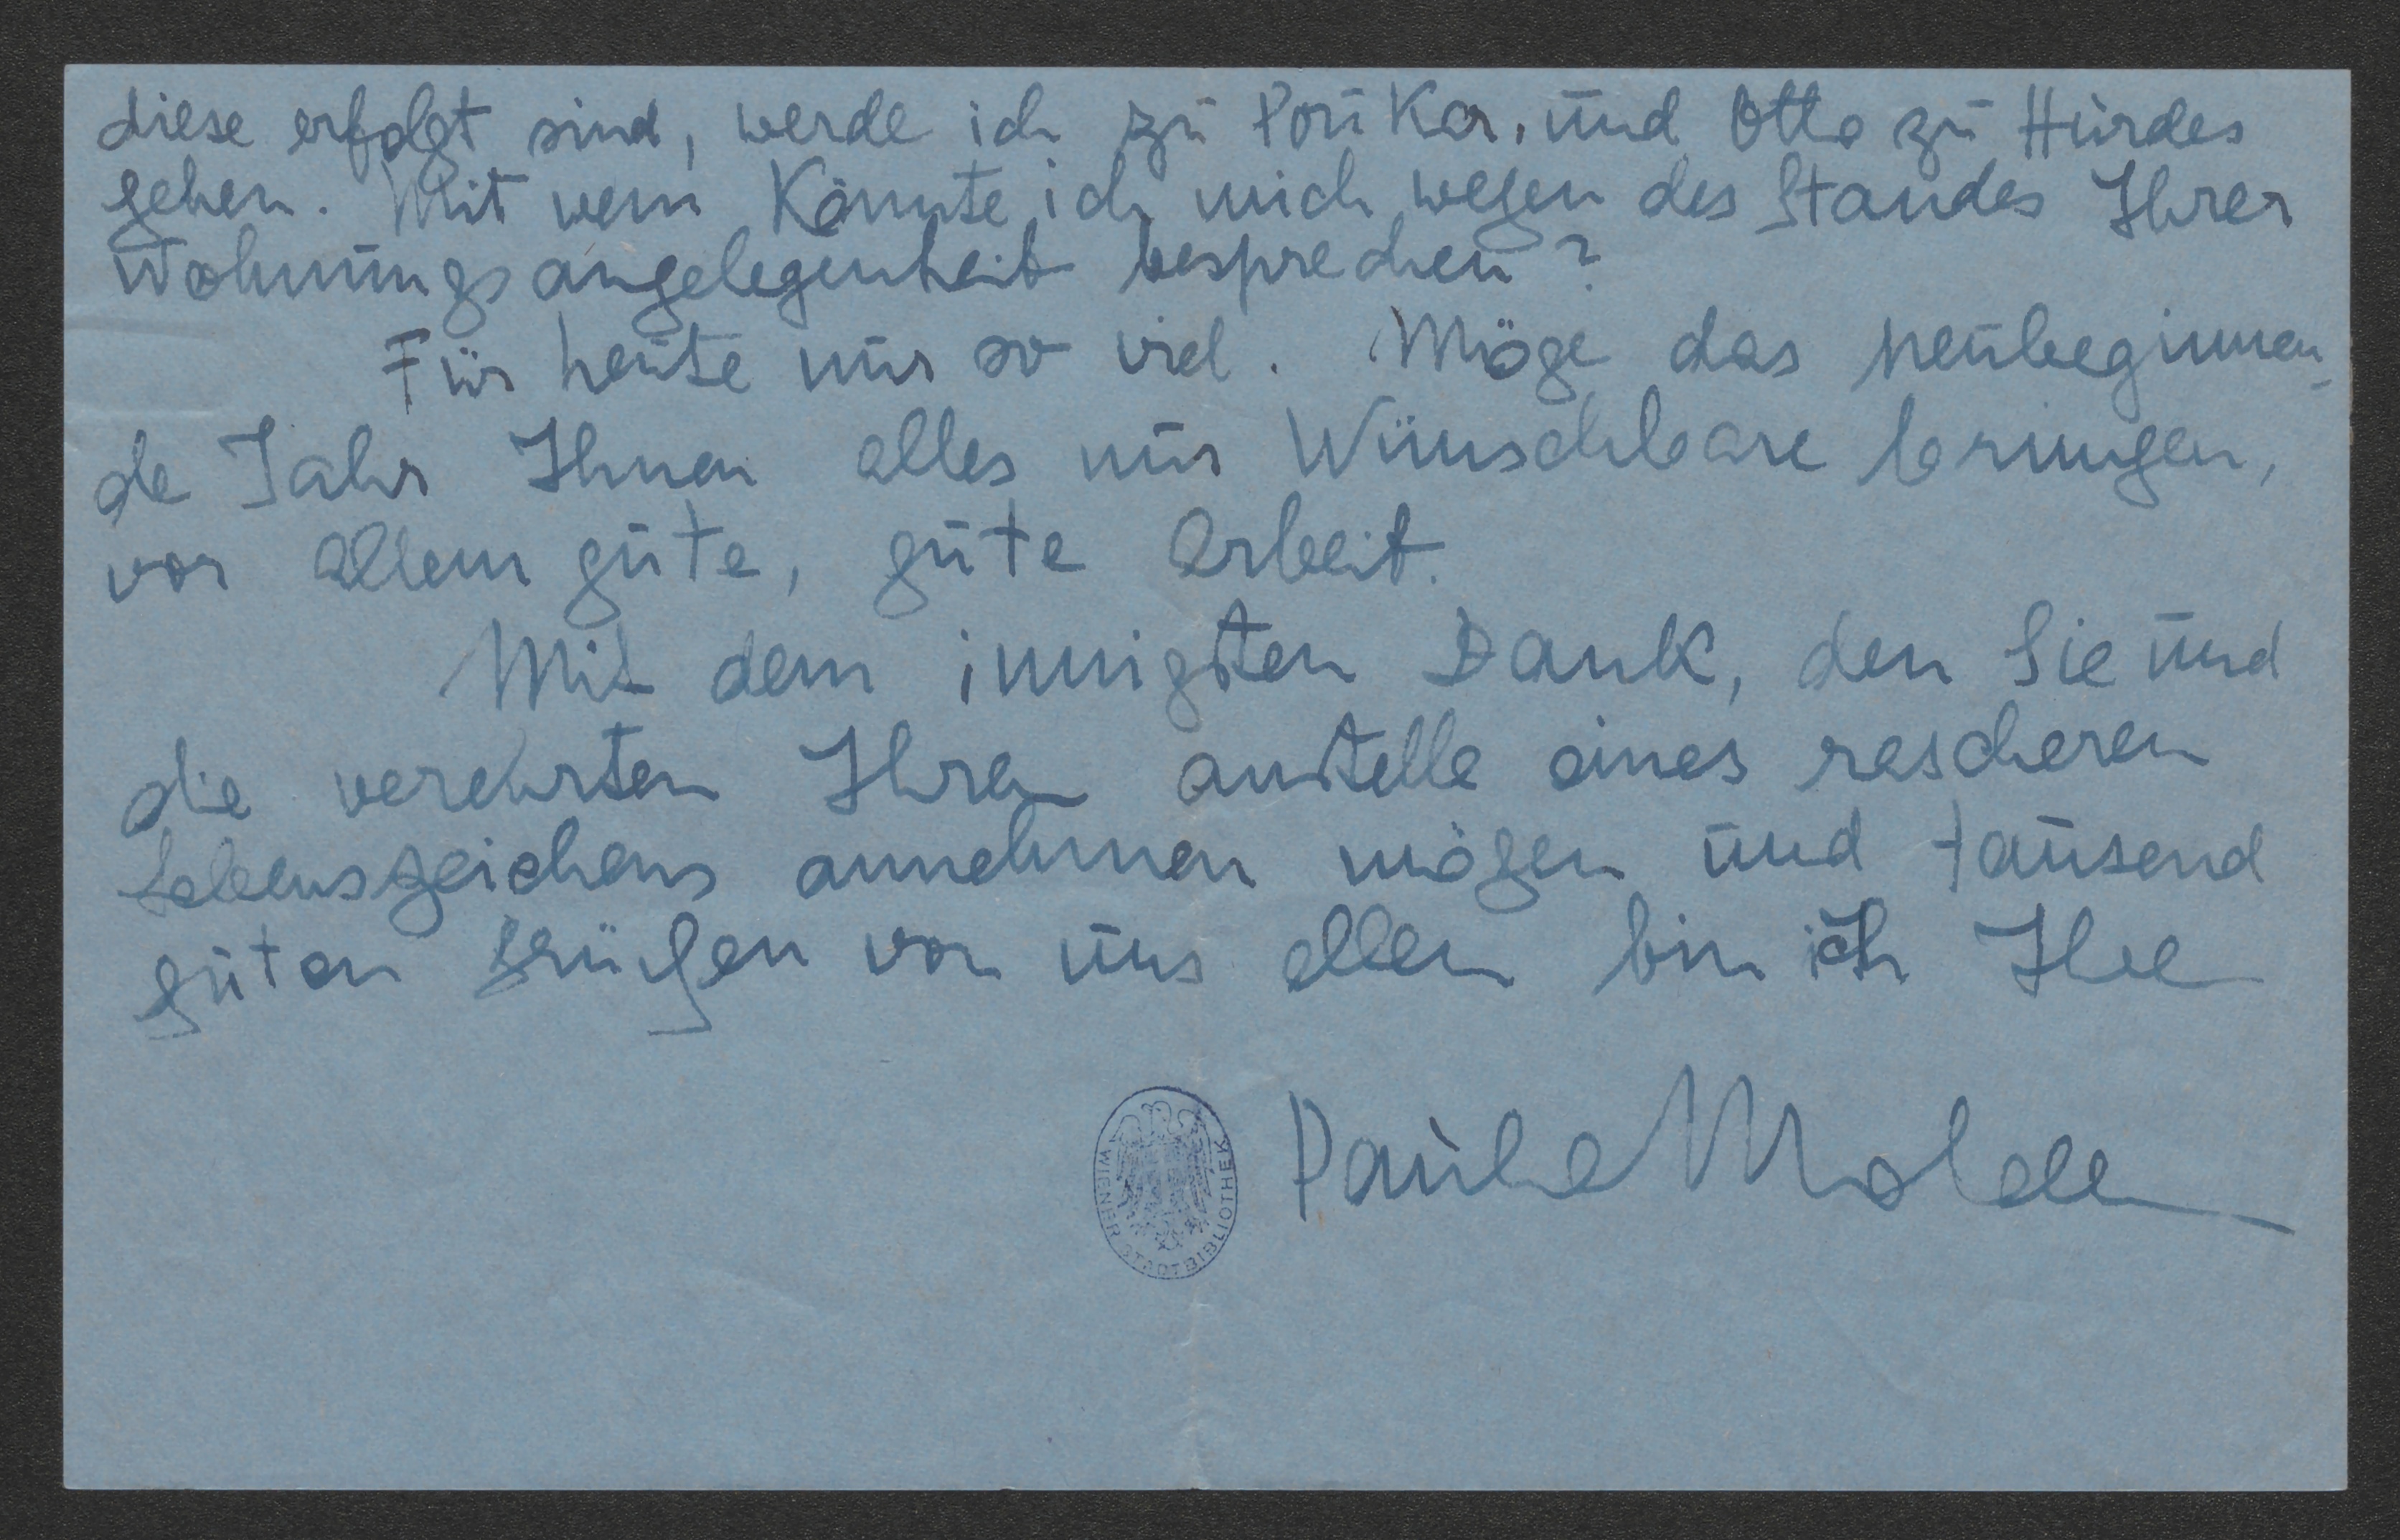 diese erfolgt sind, werde ich zu Porikar. und Otto zu Hurdes
gehen. Mit wem könnte ich mich wegen des Standes Ihrer
Wohnungsangelegenheit besprechen?
Für heute nur so viel. Möge das neubeginnen-
de Jahr Ihnen alles nur Wünschbare bringen,
vor allem gute, gute Arbeit.
Mit dem innigsten Dank, den Sie und
die verehrten Ihren anstelle eines rascheren
Lebenszeichens annehmen mögen und tausend
guten Grüßen von uns allen bin ich Ihre
Paula Molden
WIENER STADTBIBLIOTHEK